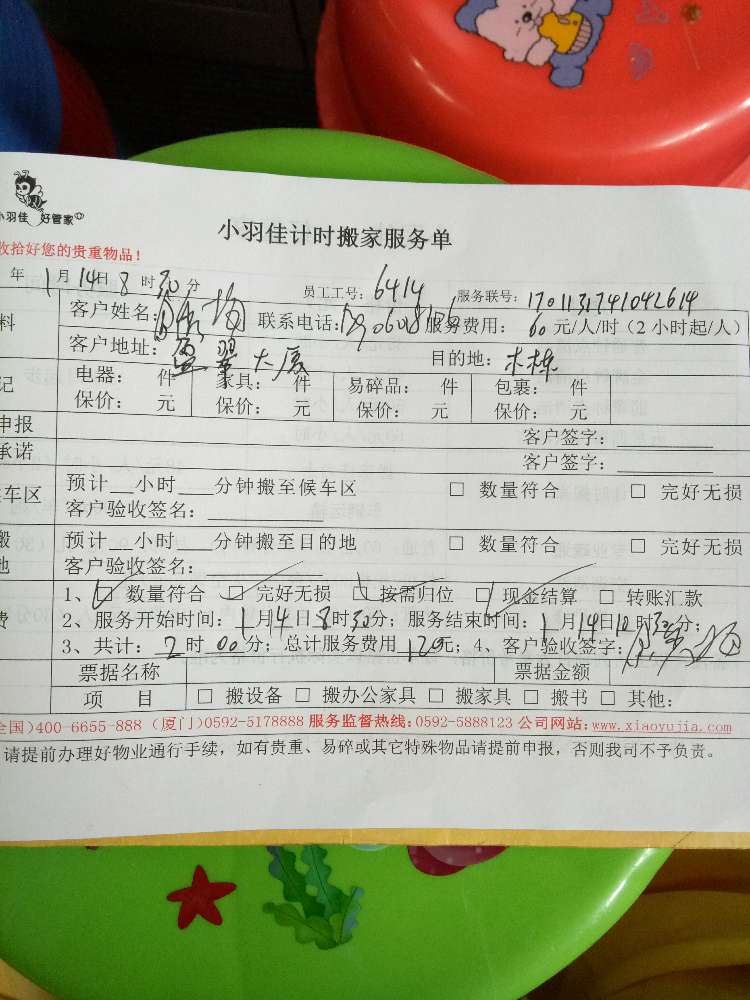 小羽佳 好管家
小羽佳计时搬家服务单
收拾好您的贵重物品！
年 1月14日8时30分 员工工号：6414 服务联号：
料 客户姓名： 联系电话： 服务费用：60元/人/时（2小时起/人）
客户地址： 大厦 目的地：木栋
记 电器： 件 家具： 件 易碎品： 件 包裹： 件
保价： 元 保价： 元 保价： 元 保价： 元
申报 客户签字：
承诺 客户签字：
车区 预计 小时 分钟搬至候车区 □ 数量符合 □ 完好无损
客户验收签名：
搬 预计 小时 分钟搬至目的地 □ 数量符合 □ 完好无损
地 客户验收签名：
1、☑ 数量符合 ☑ 完好无损 ☑ 按需归位 ☑ 现金结算 □ 转账汇款
费 2、服务开始时间：1月14日8时30分；服务结束时间：1月14日10时30分；
3、共计：2时00分；总计服务费用120元；4、客户验收签字：
票据名称 票据金额
项 目 □ 搬设备 □ 搬办公家具 □ 搬家具 □ 搬书 □ 其他：
全国)400-6655-888 (厦门)0592-5178888 服务监督热线：0592-5888123 公司网站：www.xiaoyujia.com
请提前办理好物业通行手续，如有贵重、易碎或其它特殊物品请提前申报，否则我司不予负责。